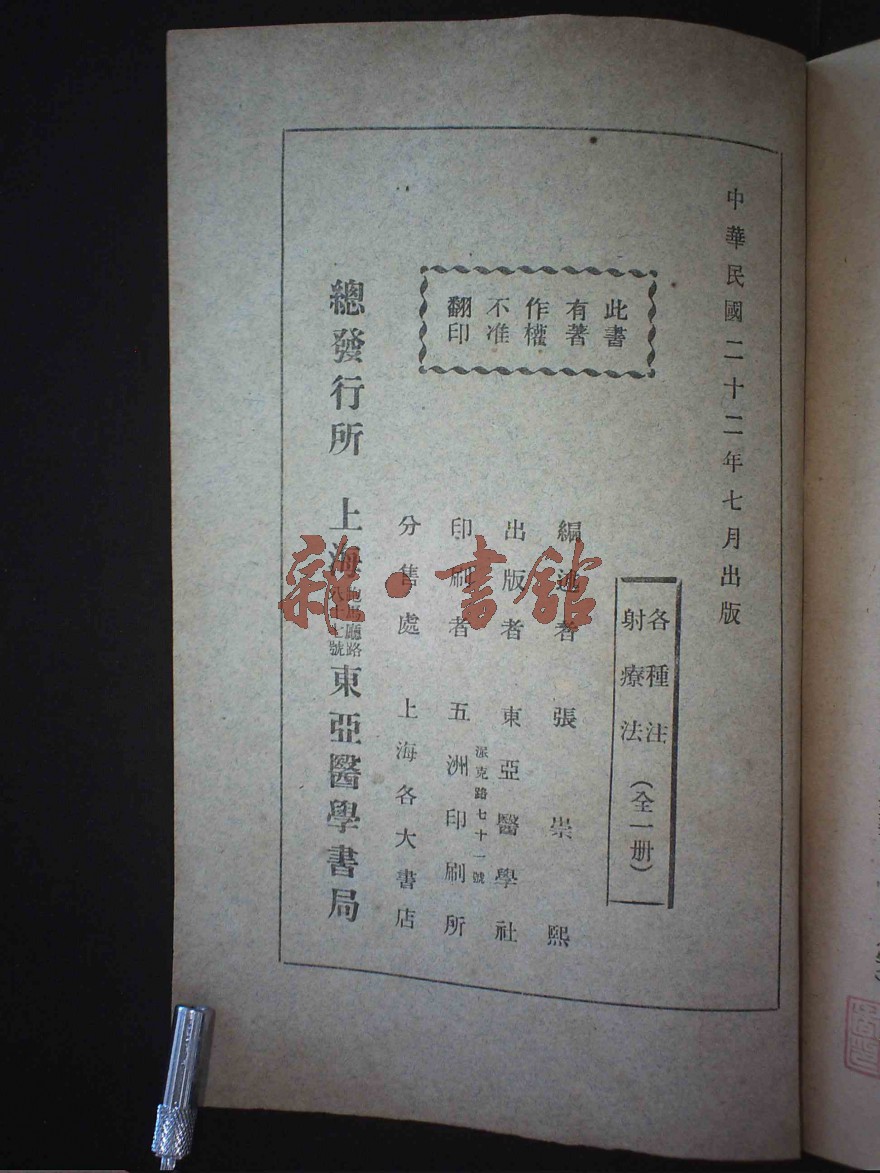 中華民國二十二年七月出版
此書
有著
作權
不准
翻印
各種注
射療法
（全一册）
編述者 張崇熙
出版者 東亞醫學社
派克路七十一號
印刷者 五洲印刷所
分售處 上海各大書店
總發行所 上海
跑馬廳路
八十七號
東亞醫學書局
雜·書館